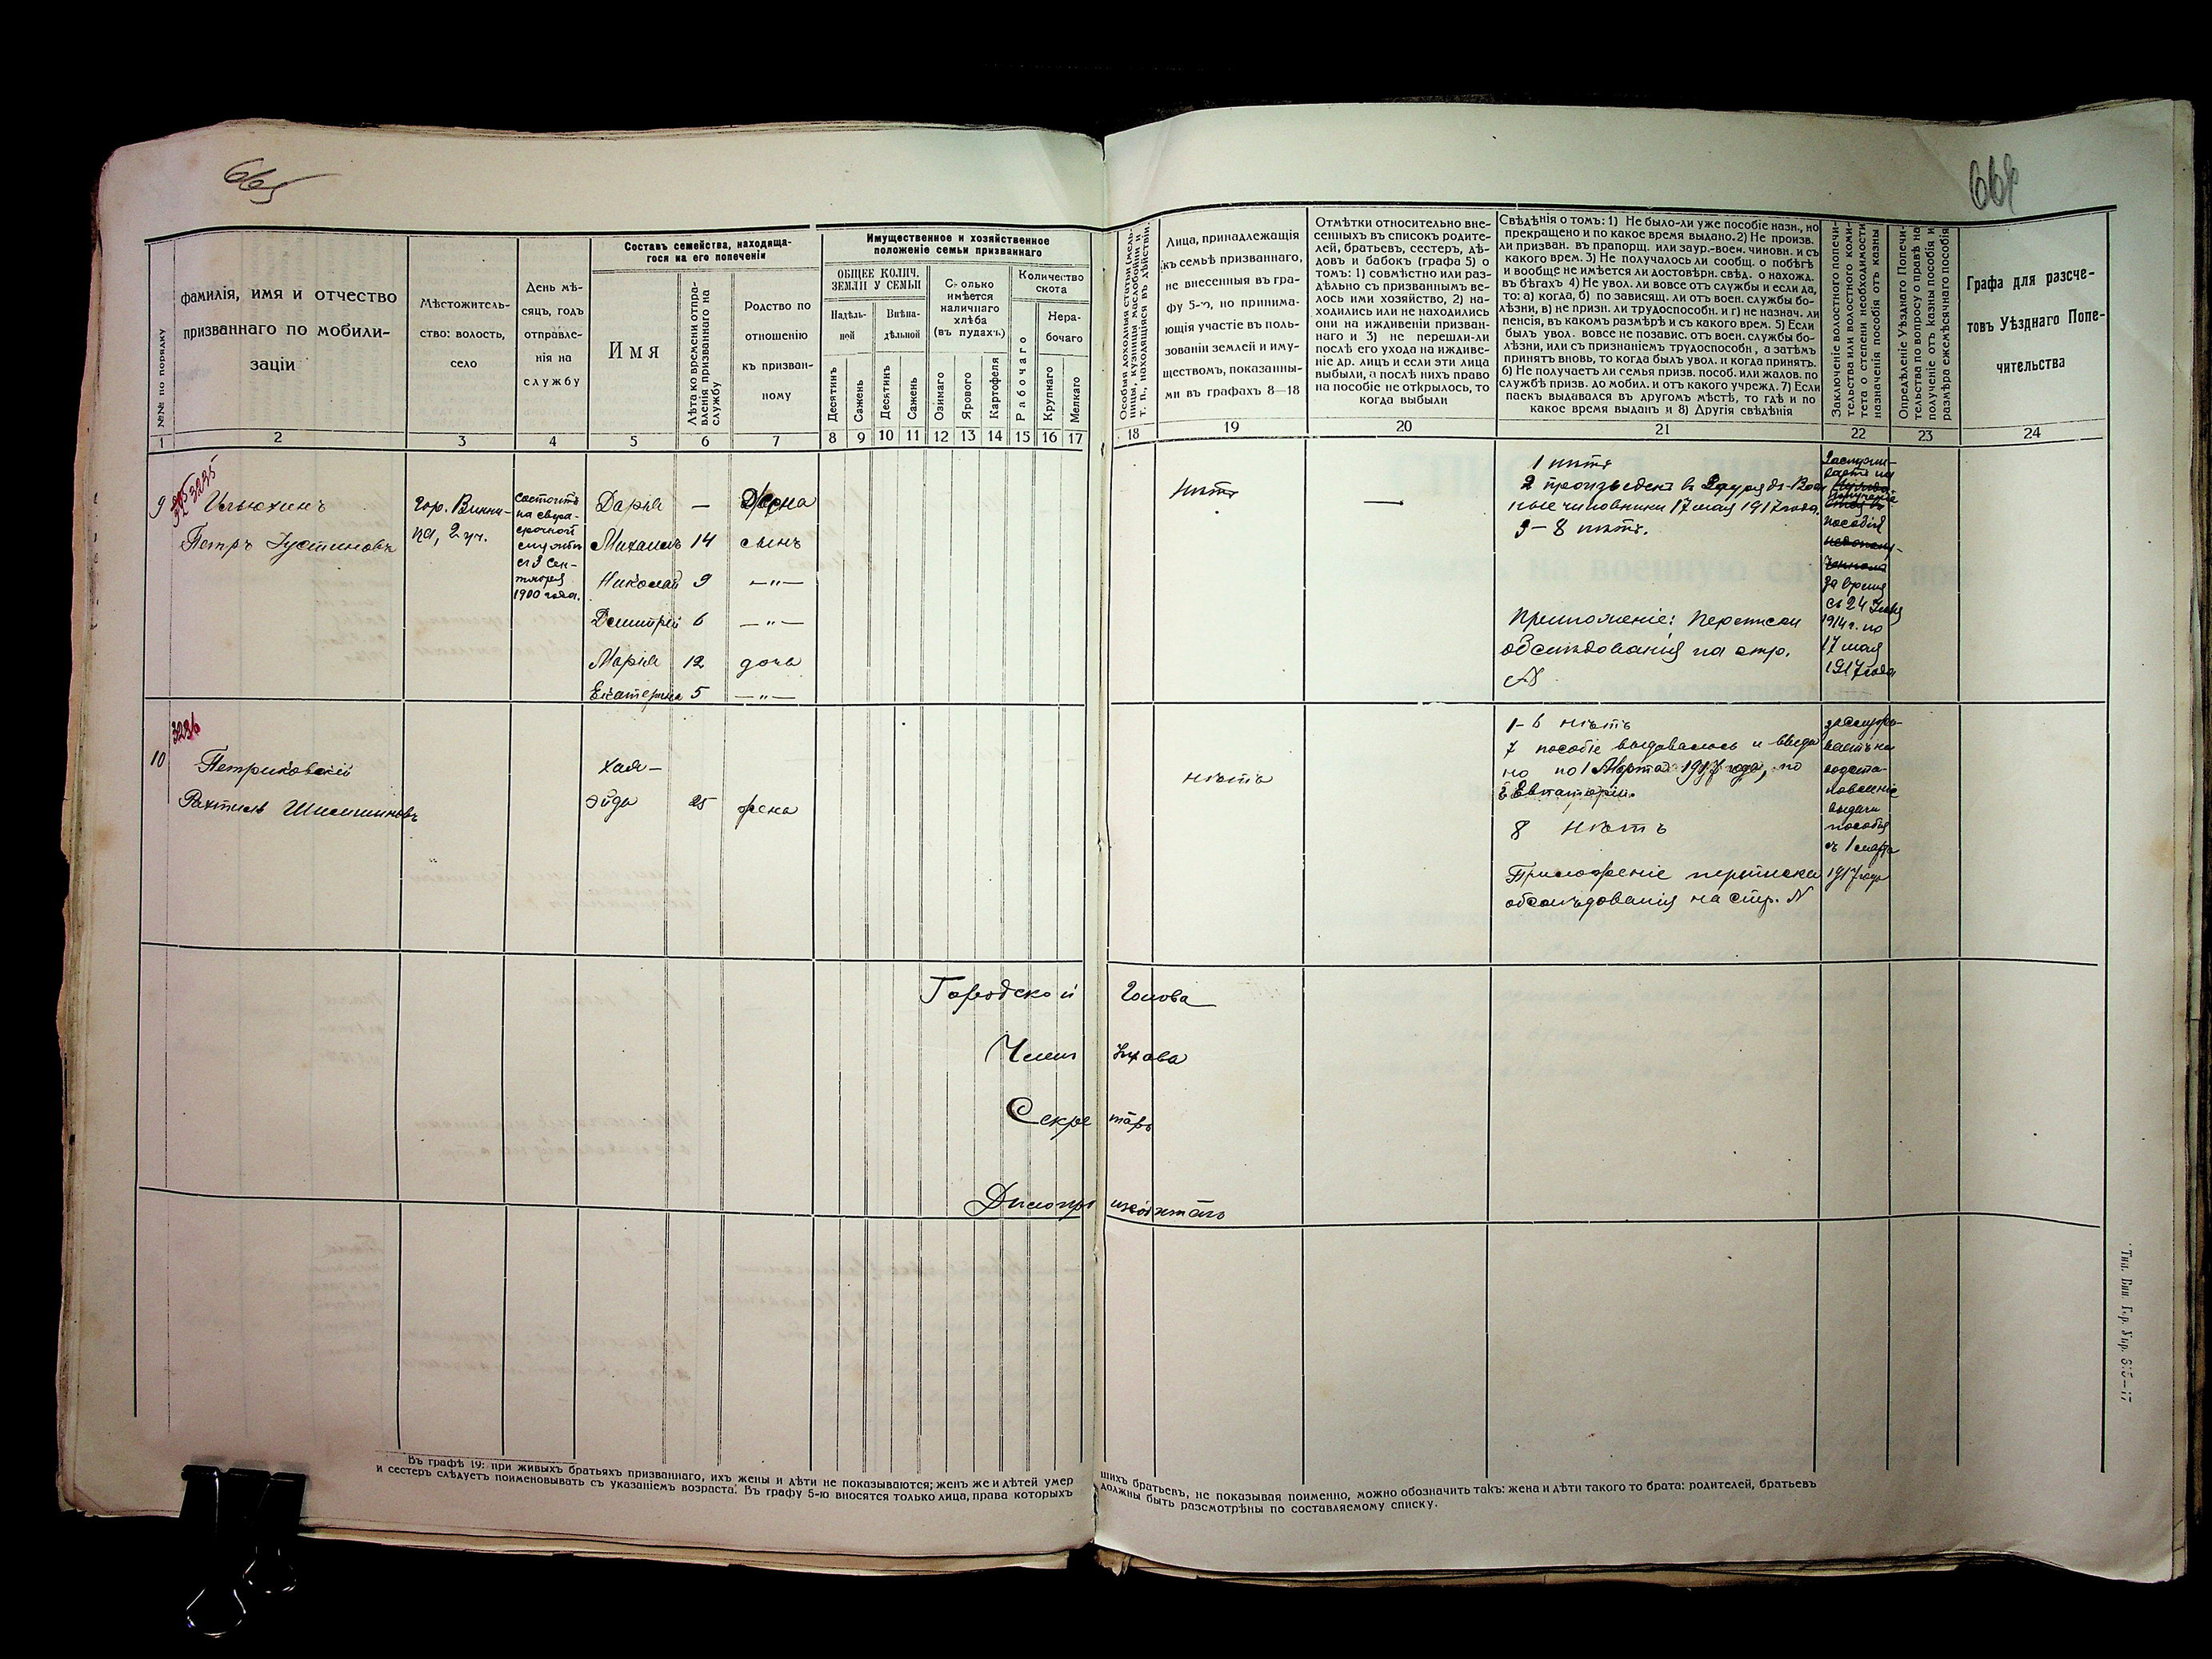 665
№№ по порядку
фамилія, имя и отчество
призваннаго по мобили-
заціи
Мѣстожитель-
ство: волость,
село
День мѣ-
сяцъ, годъ
отправле-
нія на
службу
Составъ семейства, находяща-
гося на его попеченіи
Имя
Лѣта ко времени отпра-
вленія призваннаго на
службу
Родство по
отношенію
къ призван-
ному
Имущественное и хозяйственное
положеніе семьи призваннаго
ОБЩЕЕ КОЛИЧ.
ЗЕМЛИ У СЕМЬИ
Надѣль-
ной
Внѣна-
дѣльной
Десятинъ
Сажень
Десятинъ
Сажень
С олько
имѣется
наличнаго
хлѣба
(въ пудахъ)
Озимаго
Ярового
Картофеля
Количество
скота
Рабочаго
Нера-
бочаго
Крупнаго
Мелкаго
1 2 3 4 5 6 7 8 9 10 11 12 13 14 15 16 17
9
3235
Ильюхинъ
Петръ Іустиновъ
Гор. Винни-
ца, 2 уч.
состоитъ
на сверх-
срочной
службѣ
съ 9 Сен-
тября
1900 года.
Дарья — Жена
Михаилъ 14 сынъ
Николай 9 —"—
Дмитрій 6 —"—
Марія 12 дочь
Екатерина 5 —"—
3236
10
Петриковскій
Хая-
Эйда 25 жена
Въ графѣ 19: при живыхъ братьяхъ призваннаго, ихъ жены и дѣти не показываются; женъ же и дѣтей умер
и сестеръ слѣдуетъ поименовывать съ указаніемъ возраста. Въ графу 5-ю вносятся только лица, права которыхъ
Особыя доходныя статьи (мель-
ницы, кузницы маслобойни и
т. п., находящіяся въ дѣйствіи.
Лица, принадлежащія
къ семьѣ призваннаго,
не внесенныя въ гра-
фу 5-ю, но принима-
ющія участіе въ поль-
зованіи землей и иму-
ществомъ, показанны-
ми въ графахъ 8—18
Отмѣтки относительно вне-
сенныхъ въ списокъ родите-
лей, братьевъ, сестеръ, дѣ-
довъ и бабокъ (графа 5) о
томъ: 1) совмѣстно или раз-
дѣльно съ призваннымъ ве-
лось ими хозяйство, 2) на-
ходились или не находились
они на иждивеніи призван-
наго и 3) не перешли-ли
послѣ его ухода на иждиве-
ніе др. лицъ и если эти лица
выбыли, а послѣ нихъ право
на пособіе не открылось, то
когда выбыли
Свѣдѣнія о томъ: 1) Не было-ли уже пособіе назн., но
прекращено и по какое время выдано. 2) Не произв.
ли призван. въ прапорщ. или заур.-воен. чиновн. и съ
какого врем. 3) Не получалось ли сообщ. о побѣгѣ
и вообще не имѣется ли достовѣрн. свѣд. о нахожд.
въ бѣгахъ 4) Не увол. ли вовсе отъ службы и если да,
то: а) когда, б) по зависящ. ли отъ воен. службы бо-
лѣзни, в) не призн. ли трудоспособн. и г) не назнач. ли
пенсія, въ какомъ размѣрѣ и съ какого врем. 5) Если
былъ увол. вовсе не позавис. отъ воен. службы бо-
лѣзни, или съ признаніемъ трудоспособн, а затѣмъ
принятъ вновь, то когда былъ увол. и когда принятъ.
6) Не получаетъ ли семья призв. пособ. или жалов. по
службѣ призв. до мобил. и отъ какого учрежд. 7) Если
паекъ выдавался въ другомъ мѣстѣ, то гдѣ и по
какое время выданъ и 8) Другія свѣдѣнія
Заключеніе волостного попечи-
тельства или волостного коми-
тета о степени необходимости
назначенія пособія отъ казны
Опредѣленіе Уѣзднаго Попечи-
тельства по вопросу о правѣ на
полученіе отъ казны пособія и
размѣра ежемѣсячнаго пособія
Графа для разсче-
товъ Уѣзднаго Попе-
чительства
18 19 20 21 22 23 24
нѣтъ
—
1 нѣтъ
2 произведенъ въ Зауряд-Воен
ные чиновники 17 мая 1917 года.
3-8 нѣтъ.
Приложеніе: Переписка
обслѣдованія на стр.
№
пособія
за время
съ 24
1914 г. по
17 мая
1917 года
нѣтъ
1-6 нѣтъ
7 пособіе выдавалось и выда
но по 1 Марта 1917 года, по
г. Евпаторіи.
8 нѣтъ
Приложеніе переписка
обслѣдованія на стр. №
выдачи
пособія
съ 1 марта
1917 года
Городской Голова
Членъ Управы
Секретарь
Дѣлопроизводитель
шихъ братьевъ, не показывая поименно, можно обозначить такъ: жена и дѣти такого то брата: родителей, братьевъ
должны быть разсмотрѣны по составляемому списку.